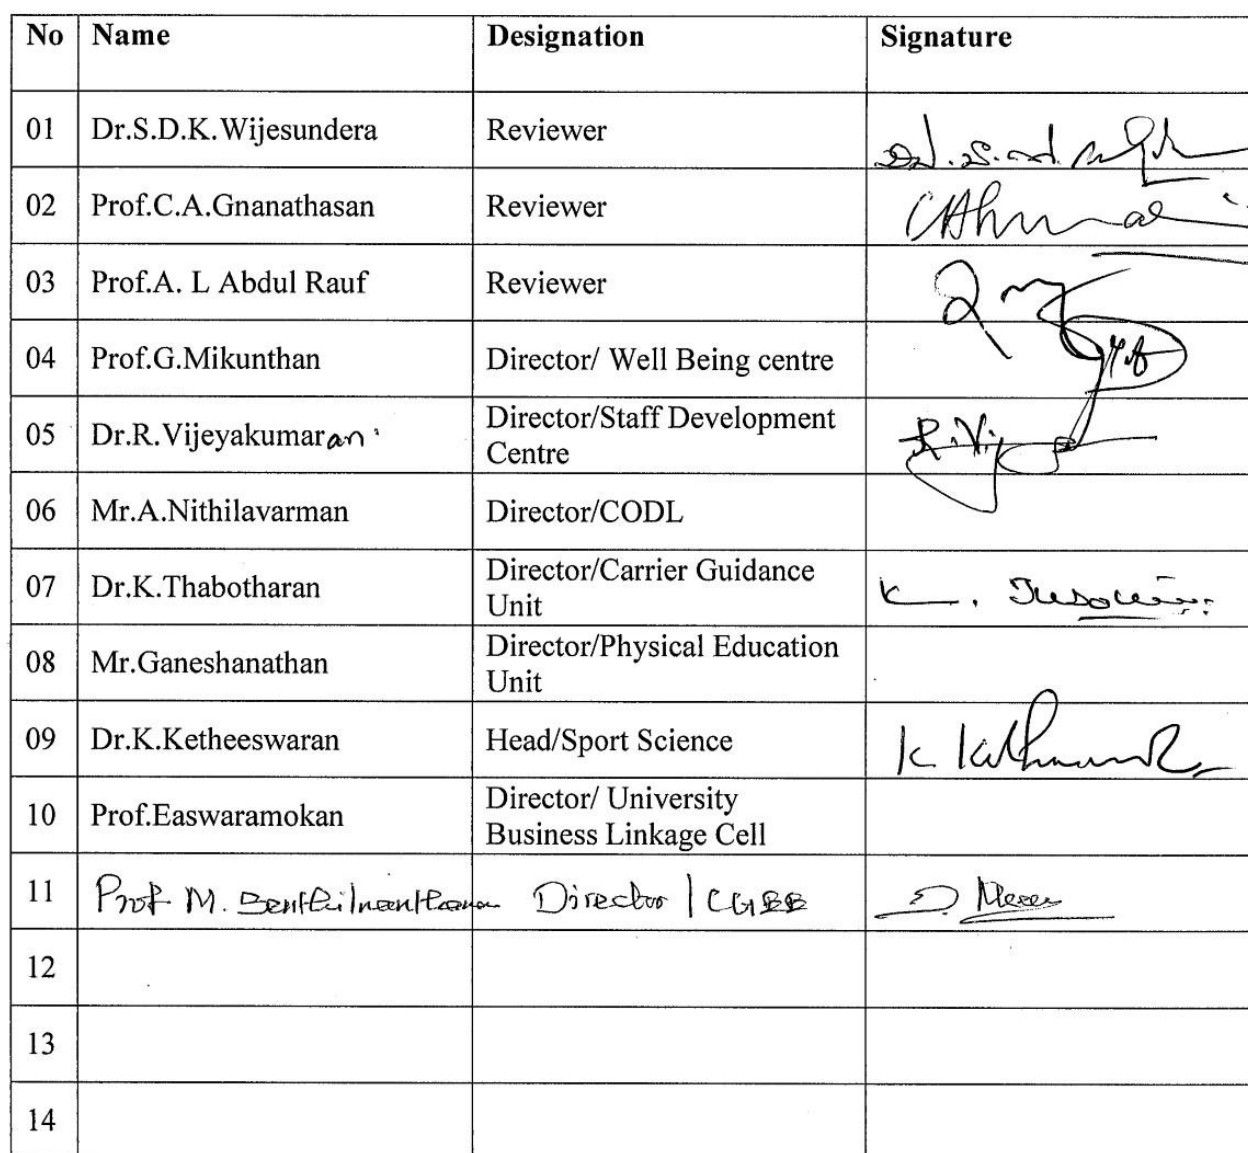 No Name Designation Signature
01 Dr.S.D.K.Wijesundera Reviewer
02 Prof.C.A.Gnanathasan Reviewer
03 Prof.A. L Abdul Rauf Reviewer
04 Prof.G.Mikunthan Director/ Well Being centre
05 Dr.R.Vijeyakumaran Director/Staff Development
Centre
06 Mr.A.Nithilavarman Director/CODL
07 Dr.K.Thabotharan Director/Carrier Guidance
Unit
08 Mr.Ganeshanathan Director/Physical Education
Unit
09 Dr.K.Ketheeswaran Head/Sport Science
10 Prof.Easwaramokan Director/ University
Business Linkage Cell
11 Prof M. Director/
12
13
14